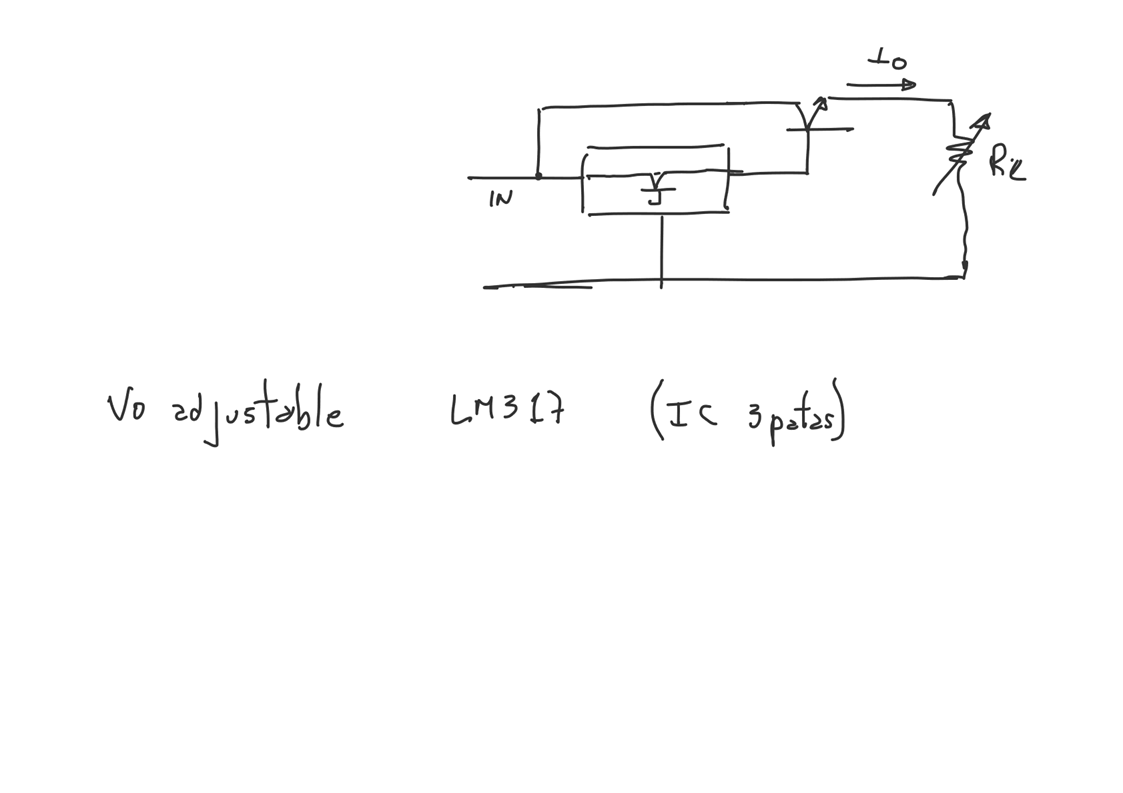 Io
RL
IN
Vo adjustable LM317 (IC 3patas)